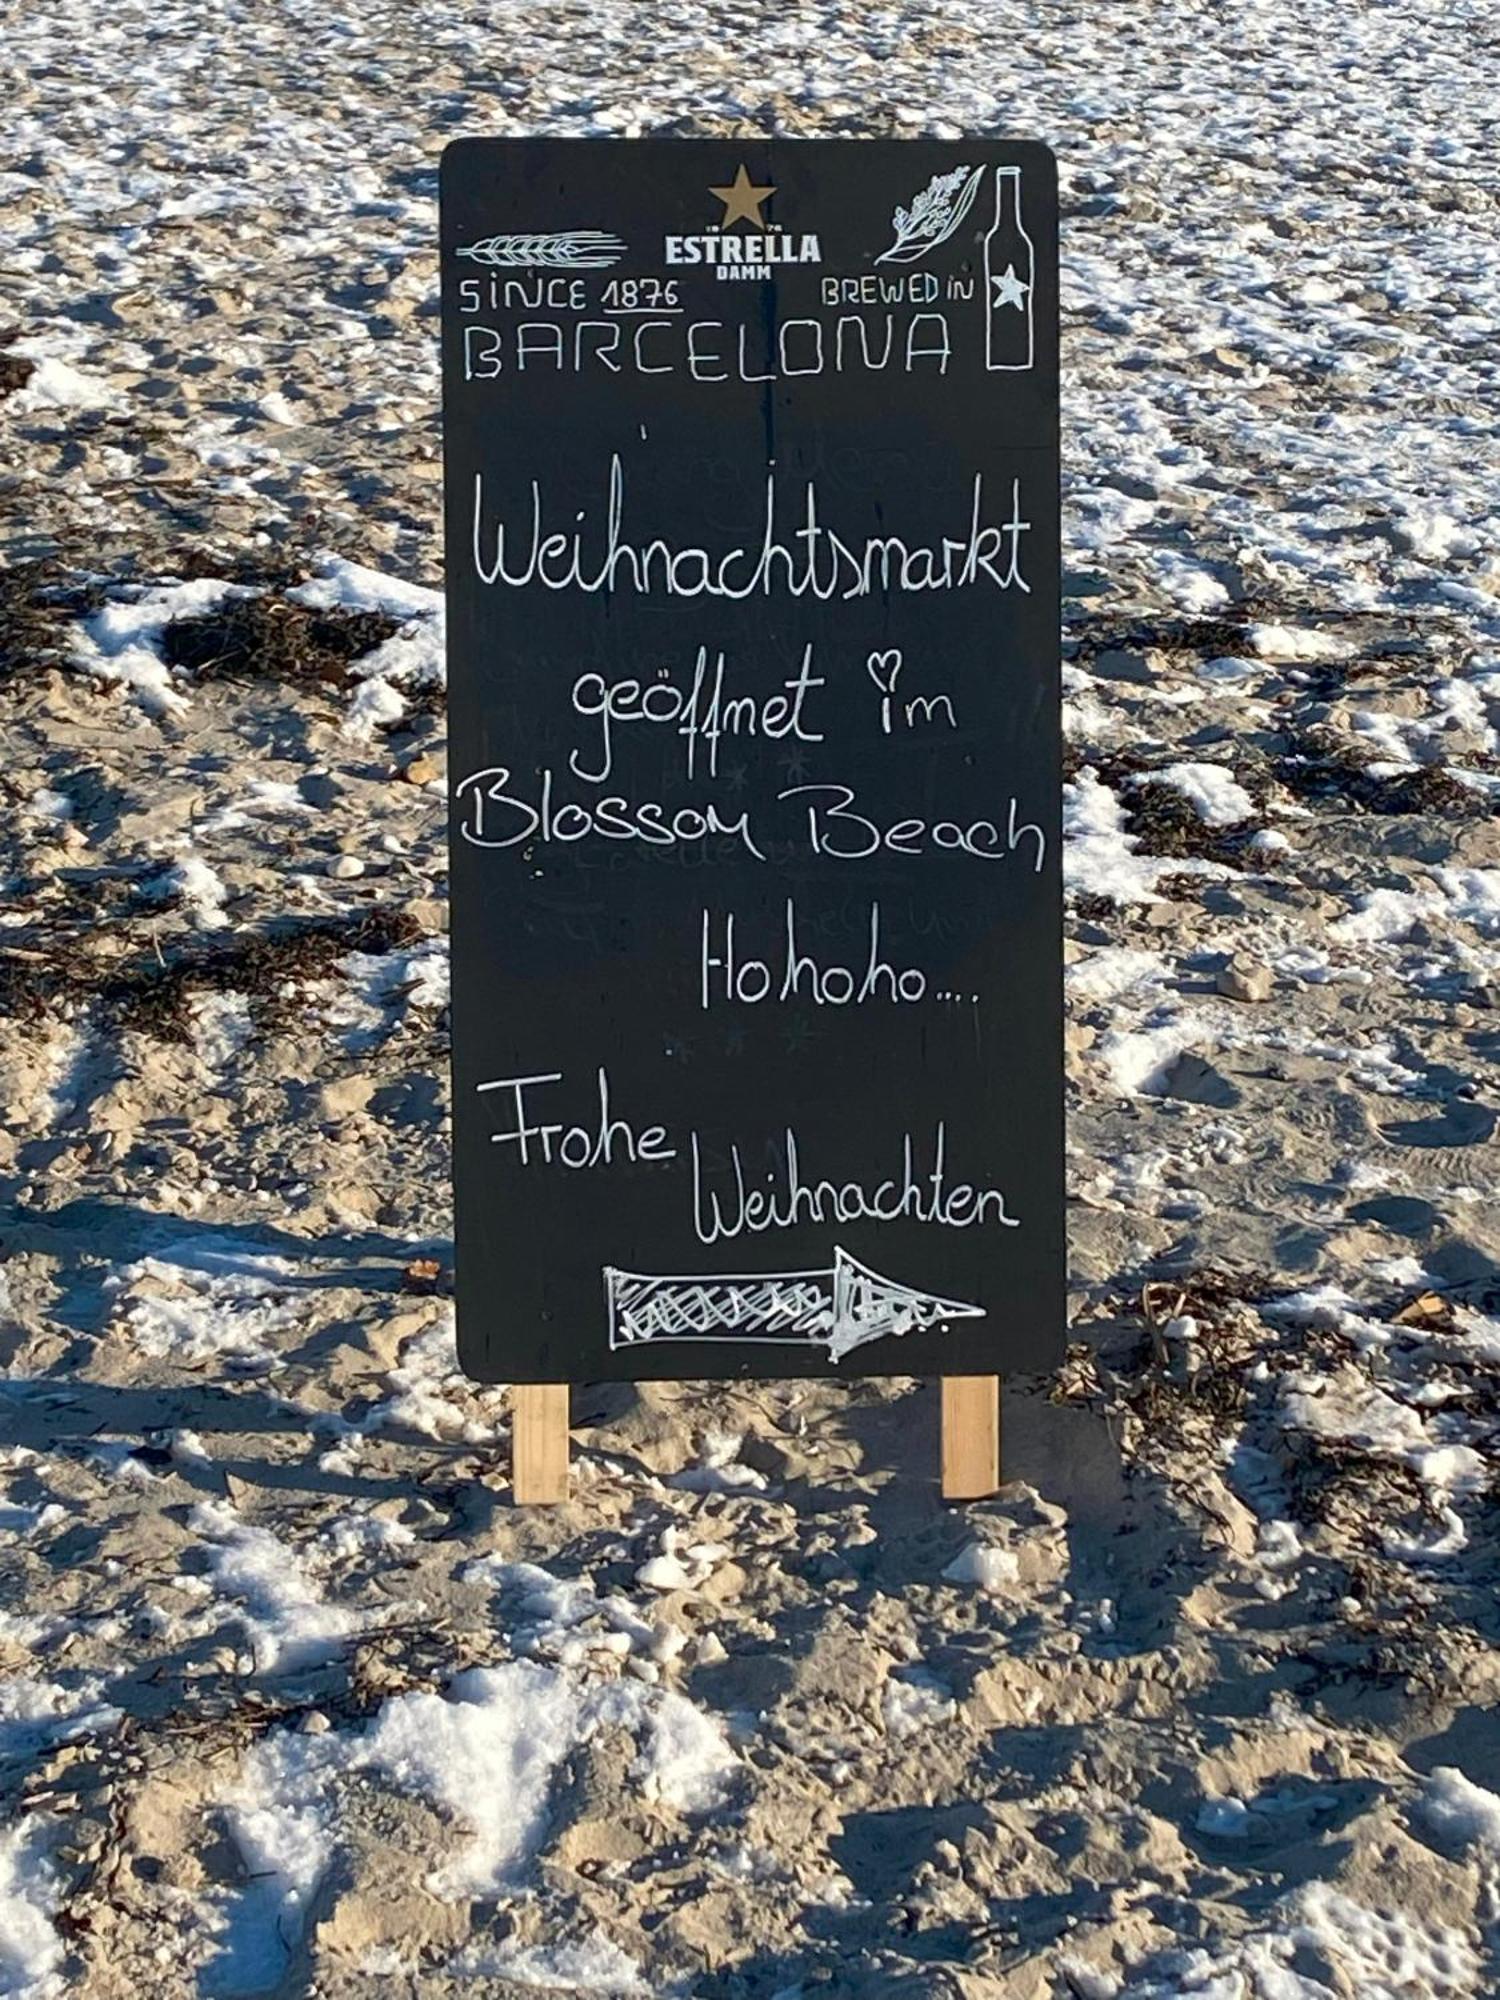 18 76
ESTRELLA
DAMM
SINCE 1876 BREWED IN
BARCELONA
Weihnachtsmarkt
geöffnet im
Blossom Beach
Hohoho....
Frohe
Weihnachten